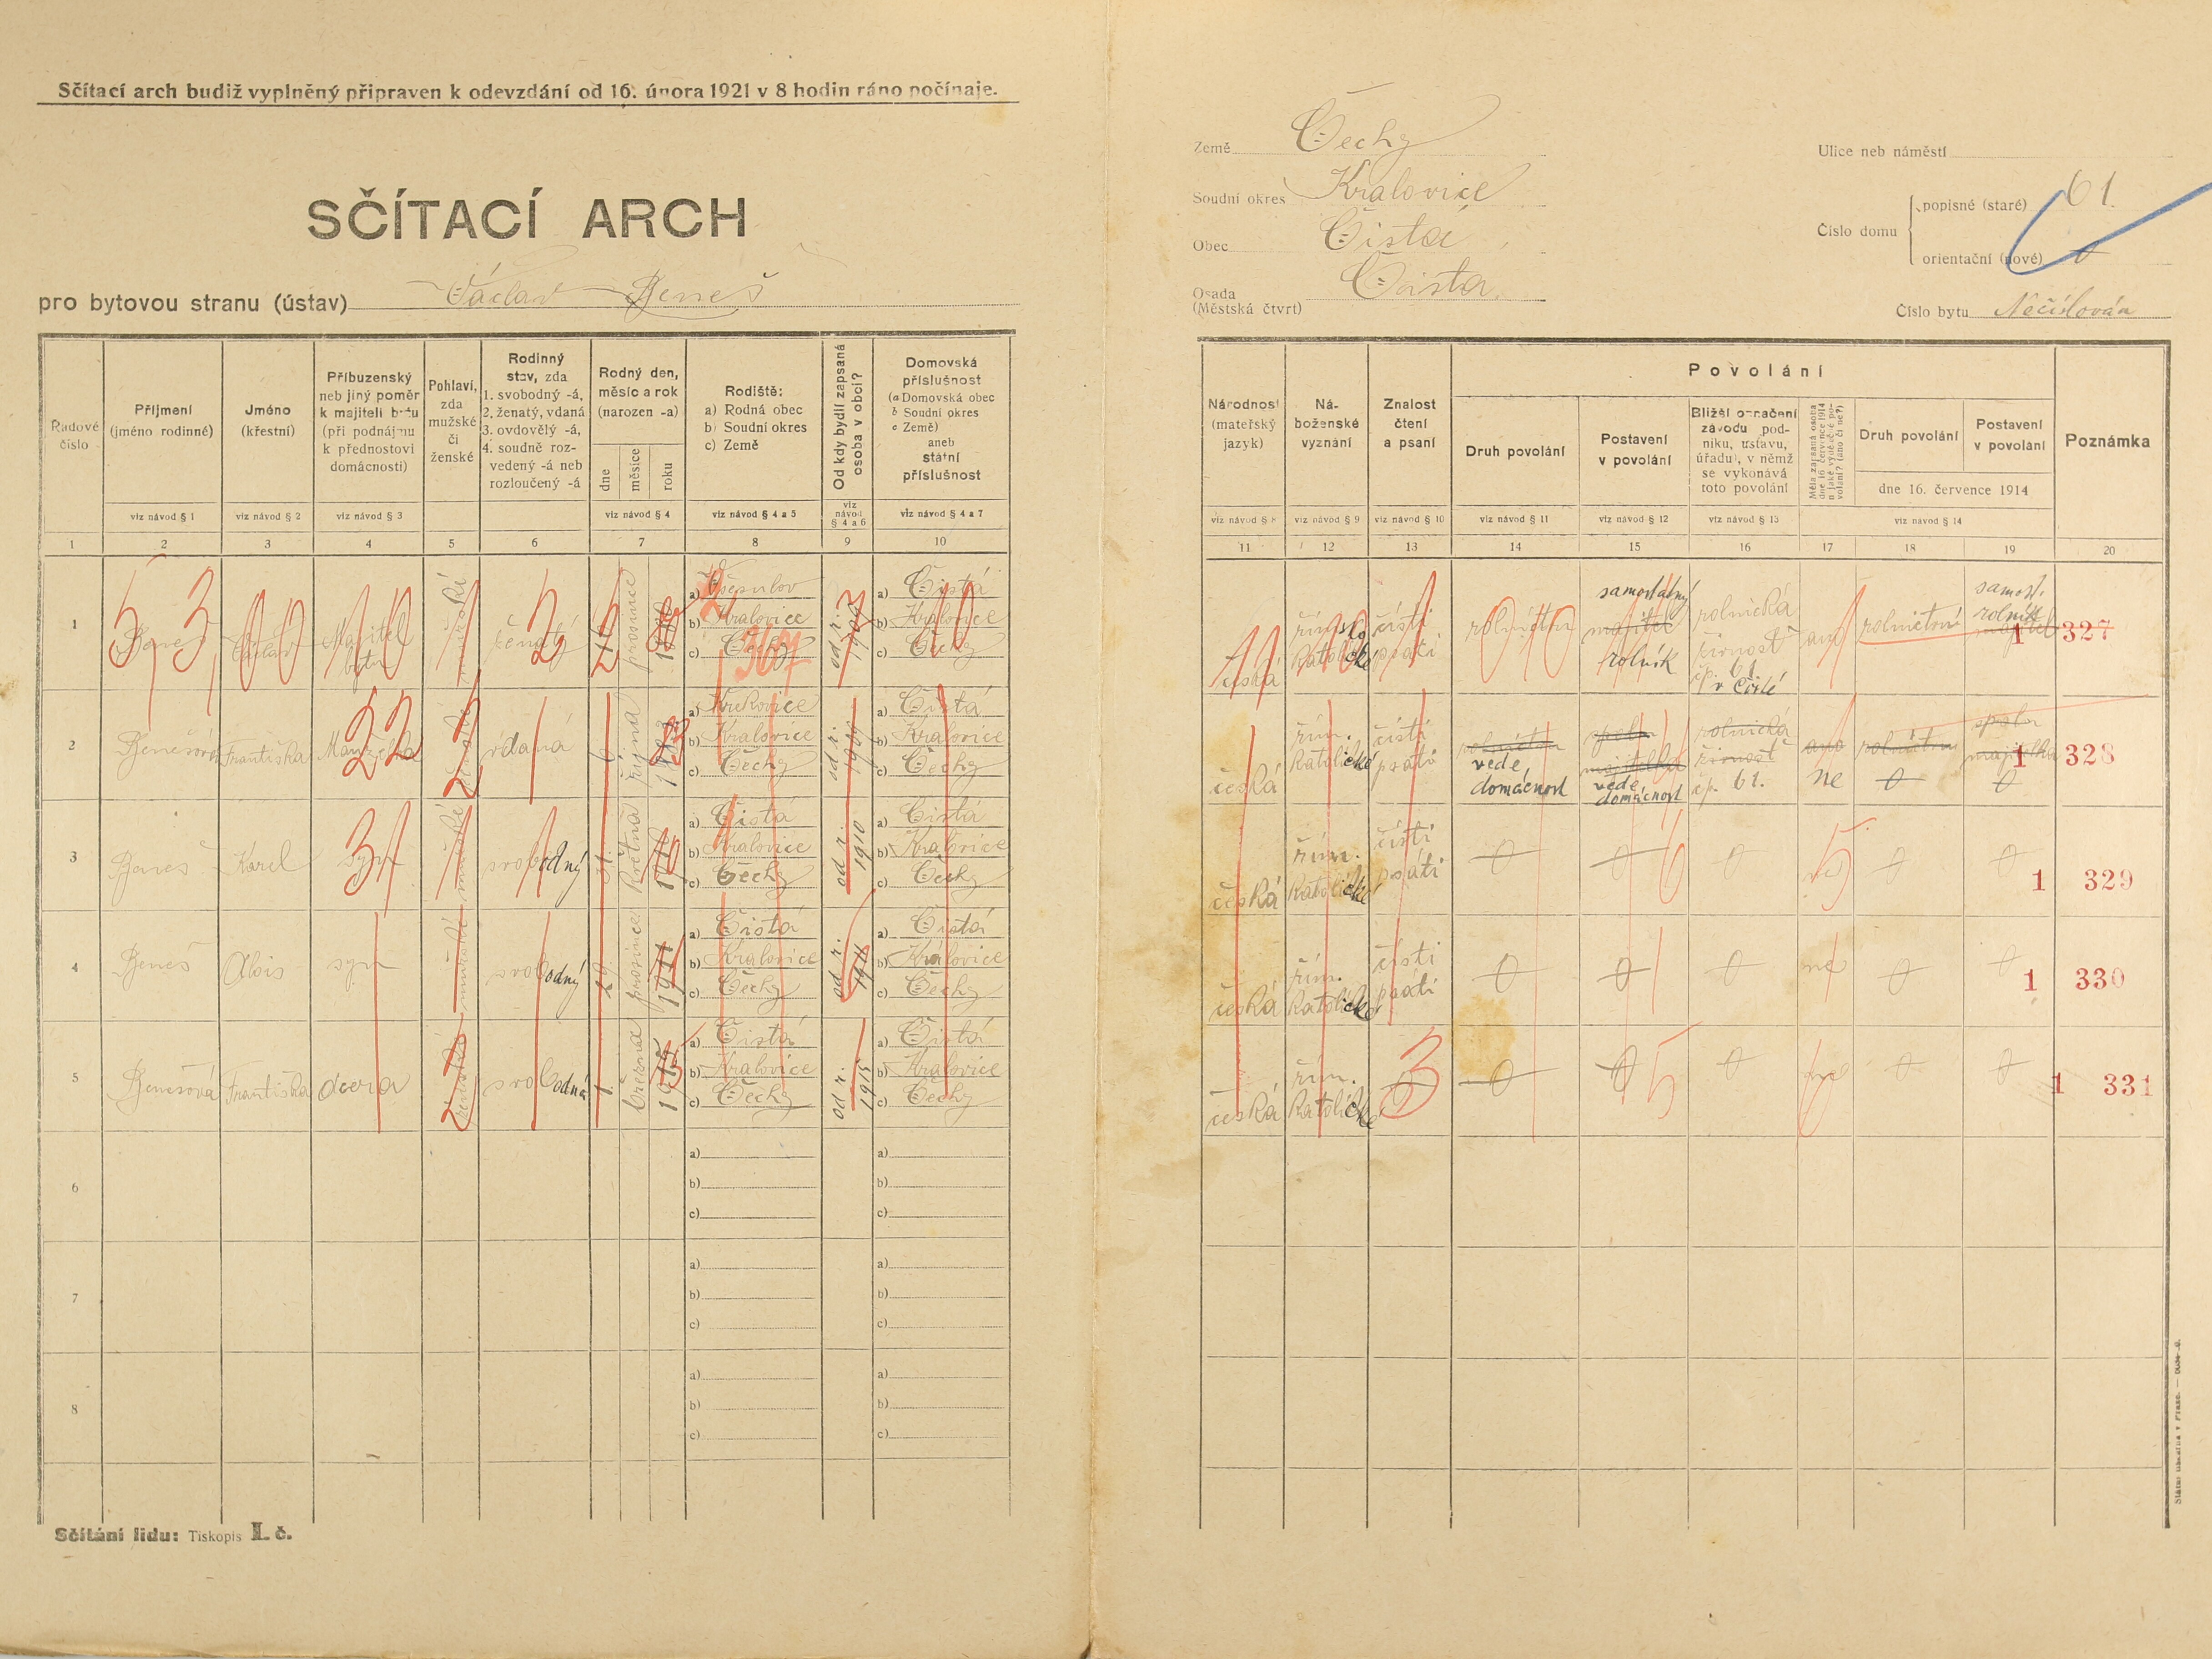 Sčítací arch budiž vyplněný připraven k odevzdání od 16. února 1921 v 8 hodin ráno počínaje.
SČÍTACÍ ARCH
pro bytovou stranu (ústav) Václav Beneš
Země Čechy
Soudní okres Kralovice
Obec Čistá
Osada Čistá
(Městská čtvrt)
Ulice neb náměstí
Číslo domu
popisné (staré) 61.
orientační (nové) 0
Číslo bytu Nečíslován
Řadové číslo
Příjmení (jméno rodinné)
Jméno (křestní)
Příbuzenský neb jiný poměr k majiteli bytu (při podnájmu k přednostovi domácnosti)
Pohlaví, zda mužské či ženské
Rodinný stav, zda
1. svobodný -á,
2. ženatý, vdaná
3. ovdovělý -á,
4. soudně rozvedený -á neb rozloučený -á
Rodný den, měsíc a rok (narozen -a)
dne
měsíce
roku
Rodiště:
a) Rodná obec
b) Soudní okres
c) Země
Od kdy bydlí zapsaná osoba v obci?
Domovská příslušnost
(a Domovská obec
b Soudní okres
c Země)
aneb
státní příslušnost
viz návod § 1
viz návod § 2
viz návod § 3
viz návod § 4
viz návod § 4 a 5
viz návod § 4 a 6
viz návod § 4 a 7
1 2 3 4 5 6 7 8 9 10
Národnost (mateřský jazyk)
Náboženské vyznání
Znalost čtení a psaní
Povolání
Druh povolání
Postavení v povolání
Bližší označení závodu podniku, ústavu, úřadu), v němž se vykonává toto povolání
Měla zapsaná osoba dne 16 července 1914 n jaké výdělečné povolání? (ano či ne?)
Druh povolání
Postavení v povolání
dne 16. července 1914
Poznámka
viz návod § 8
viz návod § 9
viz návod § 10
viz návod § 11
viz návod § 12
viz návod § 13
viz návod § 14
11 12 13 14 15 16 17 18 19 20
1 Beneš Václav Majitel bytu mužské ženatý prosince
a) Všesulov
b) Kralovice
c) Čechy
367
od r.
a) Čistá
b) Kralovice
c) Čechy
česká římsko katolické čísti psáti rolnictví samostatný majitel rolník rolnická živnost čp. 61. v Čisté ano rolnictví samost. rolník majitel 1 327
2 Benešová Františka Manželka ženské vdaná 6 října
b) Kralovice
c) Čechy
od r. 1909
a) Čistá
b) Kralovice
c) Čechy
česká řím. katolické čísti psáti rolnictví vede domácnost vede domácnost rolnická živnost čp. 61. ano ne rolnictví 0 0 1 328
3 Beneš Karel syn mužské svobodný 31. května 1910
a) Čistá
b) Kralovice
c) Čechy
od r. 1910
a) Čistá
b) Kralovice
c) Čechy
česká řím. katolické čísti psáti 0 0 0 ne 0 0 1 329
4 Beneš Alois syn mužské svobodný 29. prosince 1911
a) Čistá
b) Kralovice
c) Čechy
od r. 1911
a) Čistá
b) Kralovice
c) Čechy
česká řím. katolické čísti psáti 0 0 0 ne 0 0 1 330
5 Benešová Františka dcera ženské svobodná 1. března 1915
a) Čistá
b) Kralovice
c) Čechy
od r. 1915
a) Čistá
b) Kralovice
c) Čechy
česká řím. katolické 0 0 0 0 ne 0 0 1 331
6
a)
b)
c)
a)
b)
c)
7
a)
b)
c)
a)
b)
c)
8
a)
b)
c)
a)
b)
c)
Sčítání lidu: Tiskopis I. č.